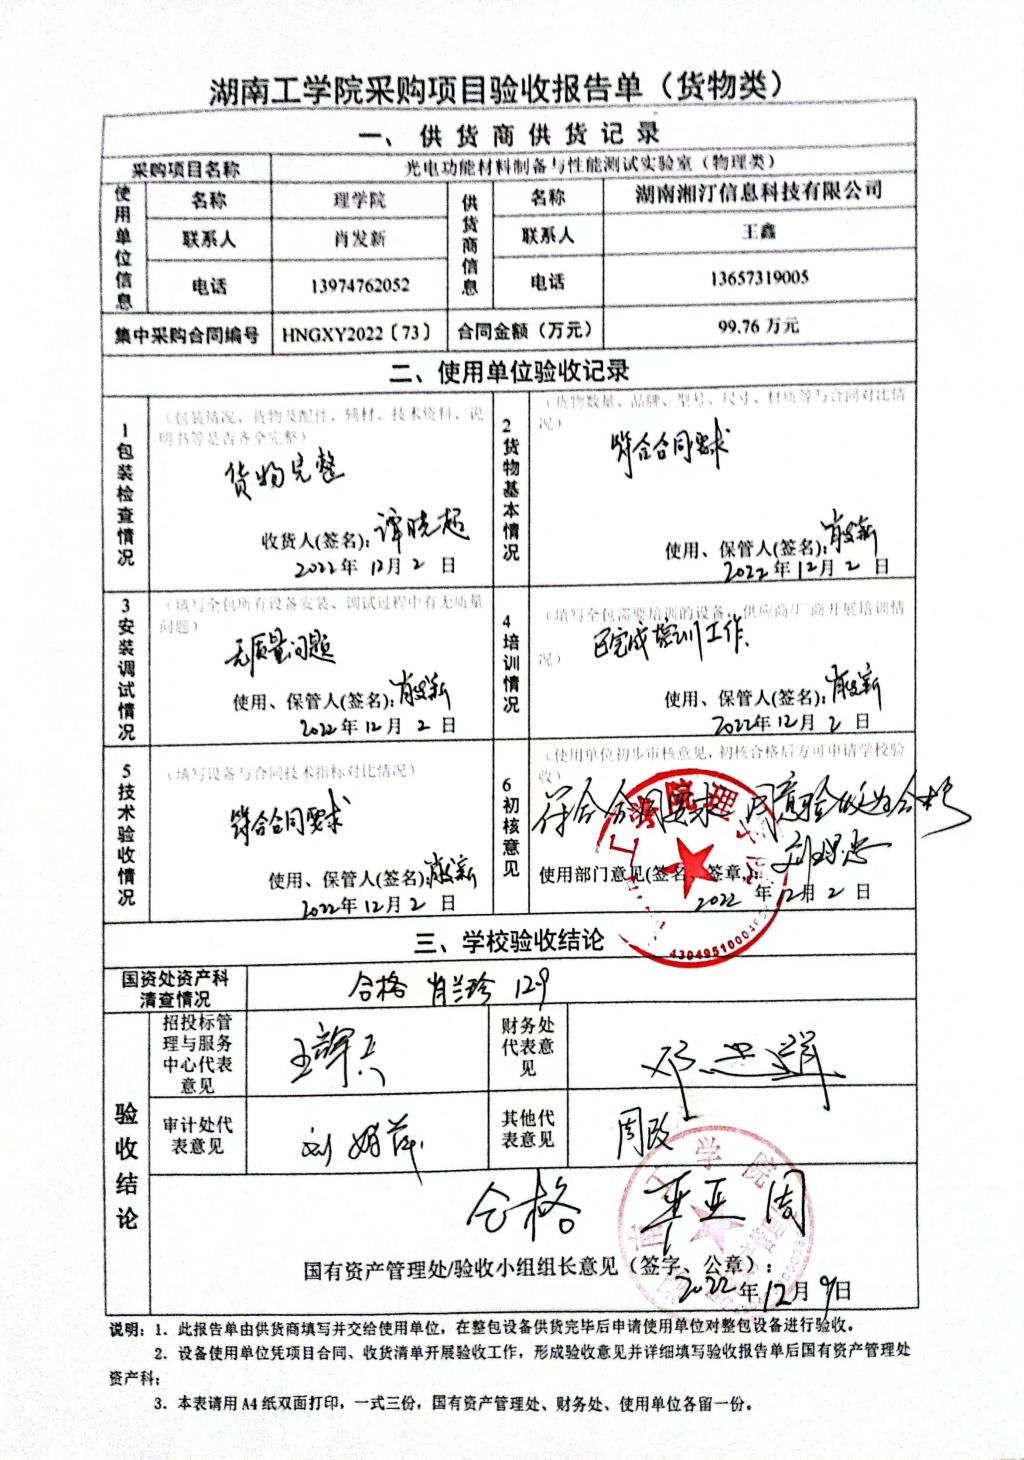 湖南工学院采购项目验收报告单（货物类）
一、供货商供货记录
采购项目名称 光电功能材料制备与性能测试实验室（物理类）
使用单位信息 名称 理学院 供货商信息 名称 湖南湘汀信息科技有限公司
联系人 肖发新 联系人 王鑫
电话 13974762052 电话 13657319005
集中采购合同编号 HNGXY2022〔73〕 合同金额（万元） 99.76 万元
二、使用单位验收记录
1包装检查情况
（包装情况，货物及配件、辅材、技术资料、说
明书等是否齐全完整）
货物完整
收货人(签名): 谭晓超
2022年 12月 2 日
2货物基本情况
（货物数量、品牌、型号、尺寸、材质等与合同对比情
况）
符合合同要求
使用、保管人(签名): 肖发新
2022年 12月 2 日
3安装调试情况
（填写全包所有设备安装、调试过程中有无质量
问题）
无质量问题
使用、保管人(签名): 肖发新
2022年 12月 2 日
4培训情况
（填写全包需要培训的设备，供应商/厂商开展培训情
况）
已完成培训工作.
使用、保管人(签名): 肖发新
2022年 12月 2 日
5技术验收情况
（填写设备与合同技术指标对比情况）
符合合同要求
使用、保管人(签名): 肖发新
2022年 12月 2 日
6初核意见
（使用单位初步审核意见，初核合格后方可申请学校验
收）
符合合同要求 同意验收为合格
使用部门意见(签名、签章):
2022 年 12月 2 日
工学院理学
4304951000
三、学校验收结论
国资处资产科
清查情况
合格 肖兰珍 12.9
验收结论
招投标管
理与服务
中心代表
意见
财务处
代表意
见
审计处代
表意见
其他代
表意见
周改
合格
国有资产管理处/验收小组组长意见（签字、公章）:
2022年 12月 9日
说明：1、此报告单由供货商填写并交给使用单位，在整包设备供货完毕后申请使用单位对整包设备进行验收。
2、设备使用单位凭项目合同、收货清单开展验收工作，形成验收意见并详细填写验收报告单后国有资产管理处
资产科;
3、本表请用 A4 纸双面打印，一式三份，国有资产管理处、财务处、使用单位各留一份。